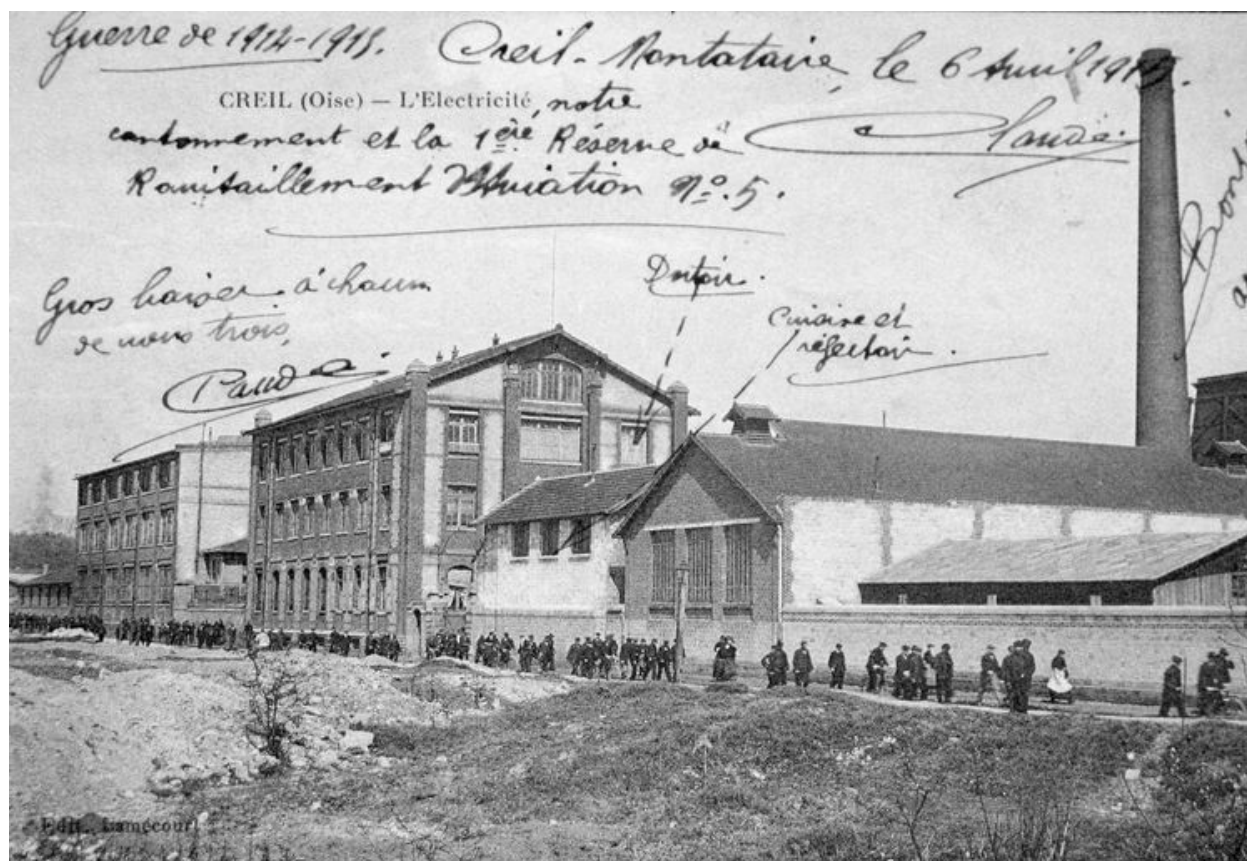 Guerre de 1914-1915. Creil-Montataire, le 6 Avril 1915.
CREIL (Oise) — L'Electricité, notre
cantonnement et la 1ère Réserve de
Ravitaillement d'Aviation No. 5.
Gros baiser à chacun
de nous trois,
Dortoir.
Cuisine et
réfectoir.
Edit. Lamécourt